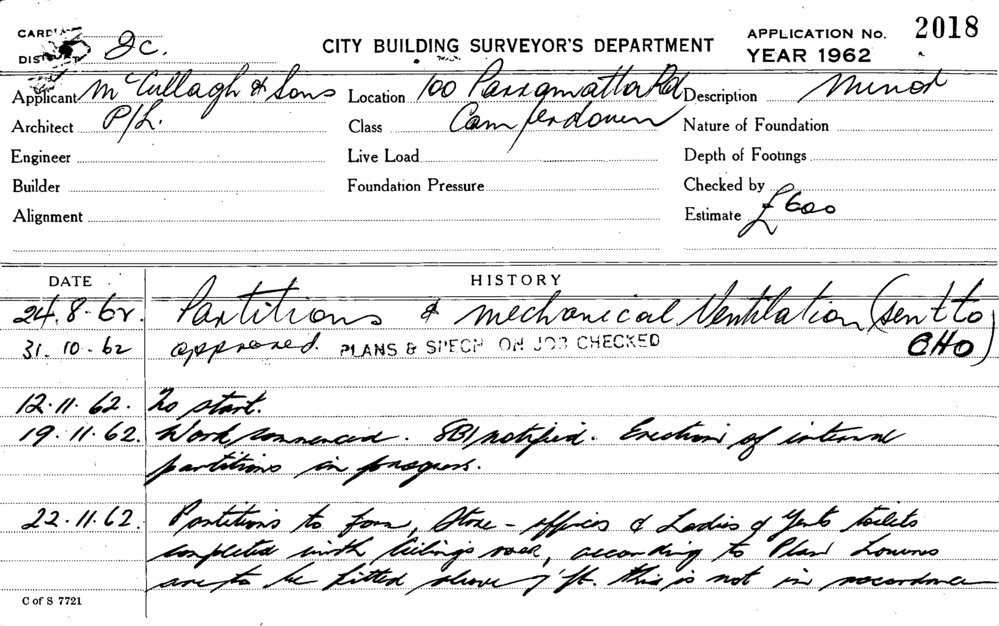 CARD
DISTRICT 2c.
CITY BUILDING SURVEYOR'S DEPARTMENT
APPLICATION No. 2018
YEAR 1962
Applicant McCullagh & Sons Location 100 Parramatta Rd Description Minor
Architect P/L. Class Camperdown Nature of Foundation
Engineer Live Load Depth of Footings
Builder Foundation Pressure Checked by
Alignment Estimate £600
DATE HISTORY
24.8.62. Partitions & mechanical Ventilation (sent to
31.10.62 approved. PLANS & SPECN ON JOB CHECKED CHO)
12.11.62. No start.
19.11.62. Work commenced. SBI notified. Erection of internal
partitions in progress.
22.11.62. Partitions to form, Store - offices & Ladies & Gents toilets
completed with ceilings over, according to Plan Louvres
are to be fitted above 7 ft. this is not in accordance
C of S 7721